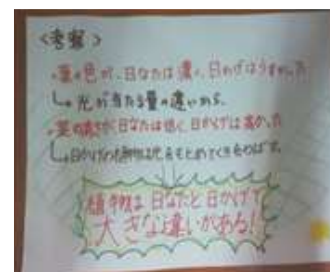 <考察>
・葉の色が、日なたは濃く、日かげはうすかった
↳光が当たる量の違いから。
・茎の高さが日なたは低く、日かげでは高かった
↳日かげの植物は光をもとめてくきをのばす。
植物は日なたと日かげで
大きな違いがある!